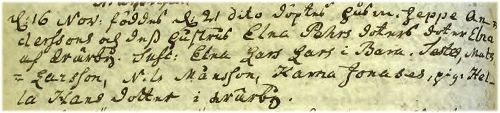 D: 16 Nov: föddes & 21 dito döptes Husm. Jeppe An
derssons och dess hustrus Elna Pehrs dotters dotter Elna
af Träröd. Susc: Elna Lars Lars i Bara. Test, Mats
= Larsson, Nils Månsson, Karna Jonases, pig. Hel
la Hans dotter i